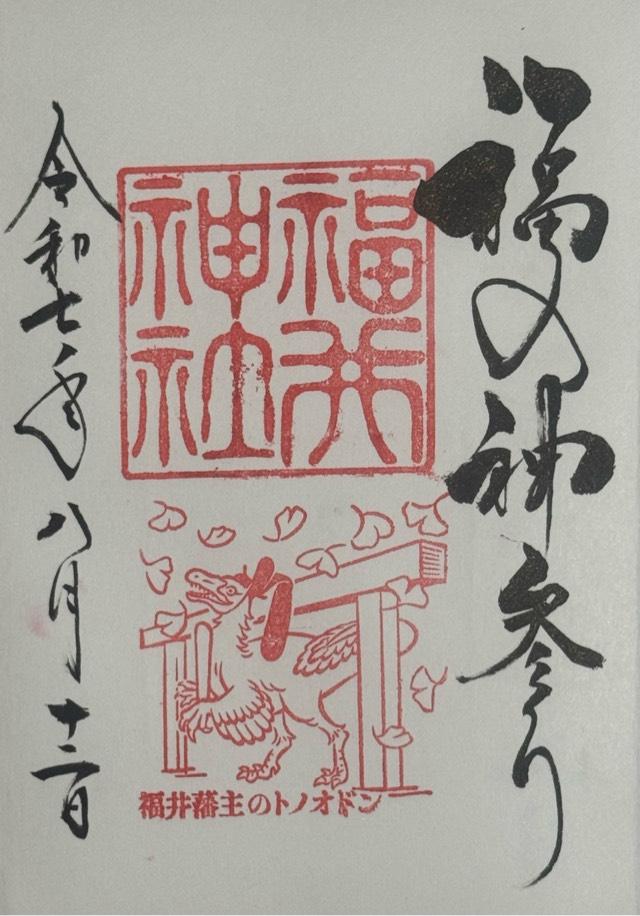 福の神参り
福井
神社
福井藩主のトノオドン
令和七年八月十二日